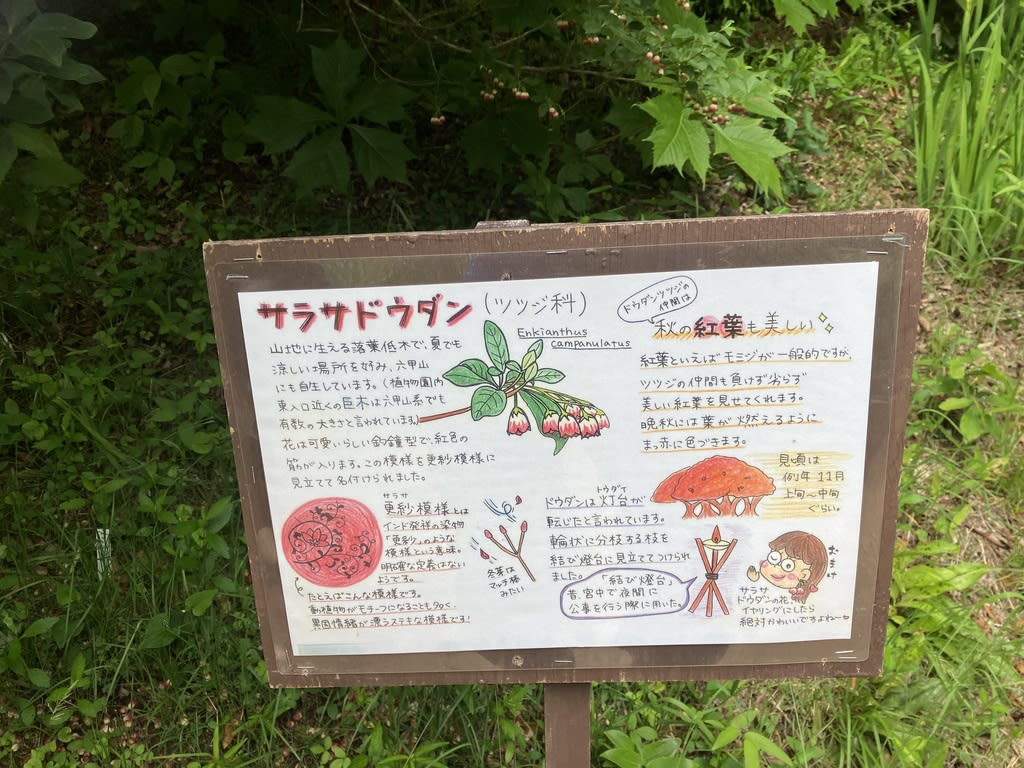 サラサドウダン(ツツジ科)
Enkianthus
campanulatus
山地に生える落葉低木で、夏でも
涼しい場所を好み、六甲山
にも自生しています。(植物園内
東入口近くの巨木は六甲山系でも
有数の大きさと言われています。)
花は可愛いらしい釣鐘型で、紅色の
筋が入ります。この模様を更紗模様に
見立てて名付けられました。
サラサ
更紗模様とは
インド発祥の染物
「更紗」のような
模様という意味。
明確な定義はない
ようです。
たとえばこんな模様です。
動植物がモチーフになることも多く、
異国情緒が漂うステキな模様です!
冬芽は
マッチ棒
みたい
ドウダンツツジの
仲間は
秋の紅葉も美しい
紅葉といえばモミジが一般的ですが、
ツツジの仲間も負けず劣らず
美しい紅葉を見せてくれます。
晩秋には葉が燃えるように
まっ赤に色づきます。
見頃は
例年11月
上旬~中旬
ぐらい。
トウダイ
ドウダンは灯台が
転じたと言われています。
輪状に分枝する枝を
結び燈台に見立ててつけられ
ました。
「結び燈台」
昔、宮中で夜間に
公事を行う際に用いた。
おまけ
サラサ
ドウダンの花、
イヤリングにしたら
絶対かわいいですよね~♡